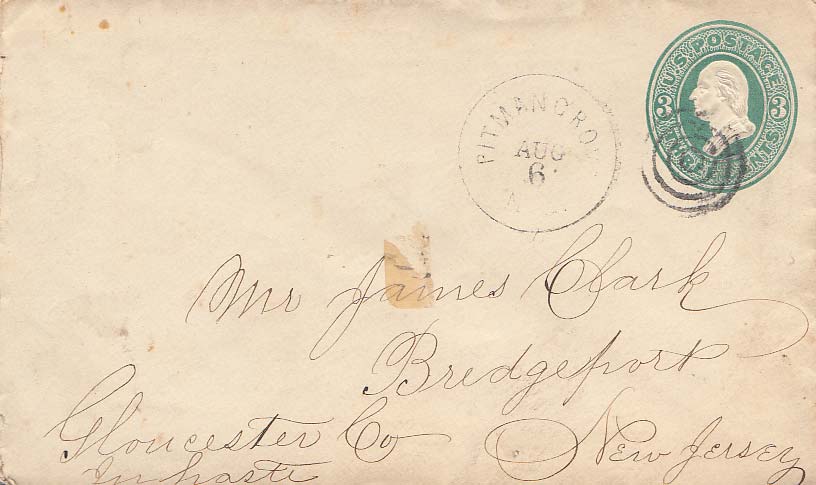 U.S. POSTAGE
3 3
THREE CENTS
PITMAN GRO
AUG
6
N
Mr James Clark
Bridgeport
Gloucester Co New Jersey
In haste